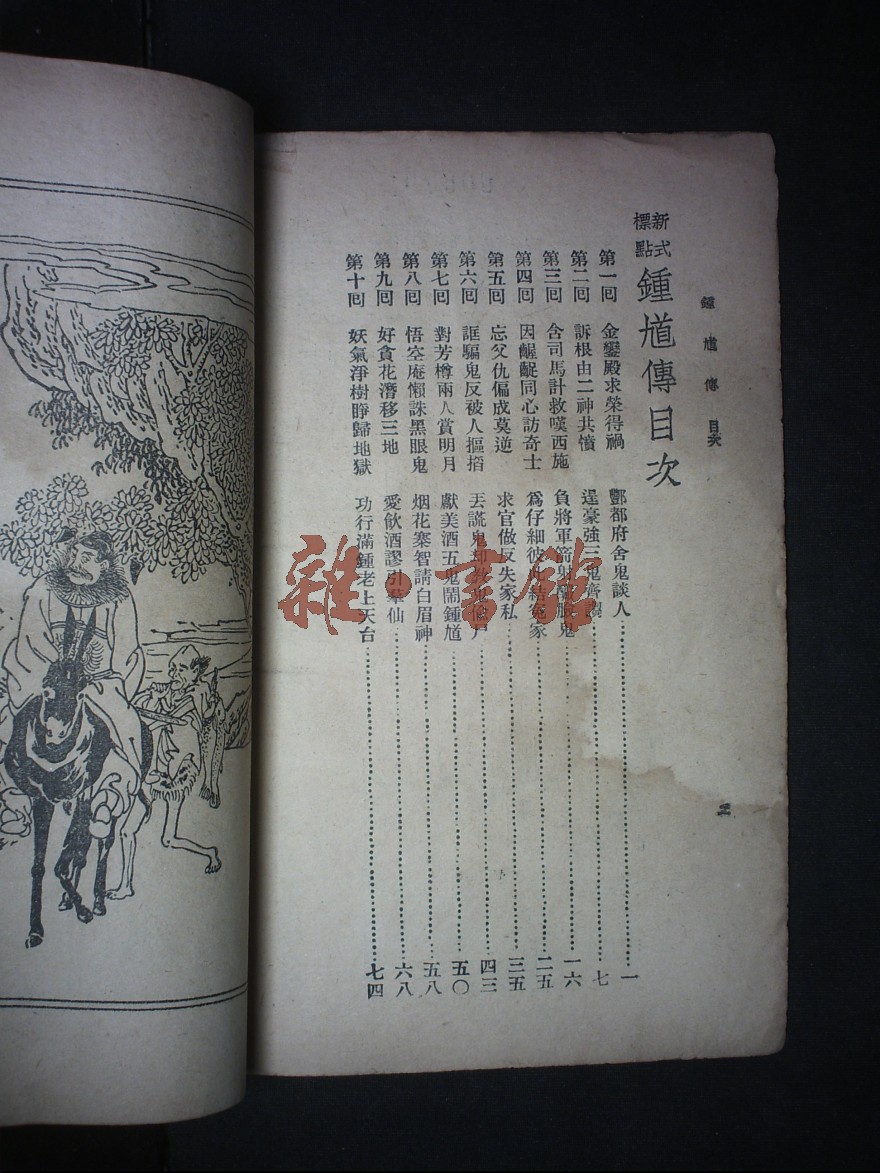 鍾馗傳 目次
新式標點 鍾馗傳目次
第一回 金鑾殿求榮得禍 酆都府舍鬼談人 一
第二回 訴根由二神共憤 逞豪強三鬼齊 七
第三回 含司馬計救嘆西施 負將軍箭射鬼 一六
第四回 因齷齪同心訪奇士 爲仔細彼此結寃家 二五
第五回 忘父仇偏成莫逆 求官做反失家私 三五
第六回 誆騙鬼反被人摳掐 丟謊鬼却教鬼偸尸 四三
第七回 對芳樽兩人賞明月 獻美酒五鬼鬧鍾馗 五〇
第八回 悟空庵懶誅黑眼鬼 烟花寨智請白眉神 五八
第九回 好貪花潛移三地 愛飲酒謬引羣仙 六八
第十回 妖氣淨樹睜歸地獄 功行滿鍾老上天台 七四
雜·書館